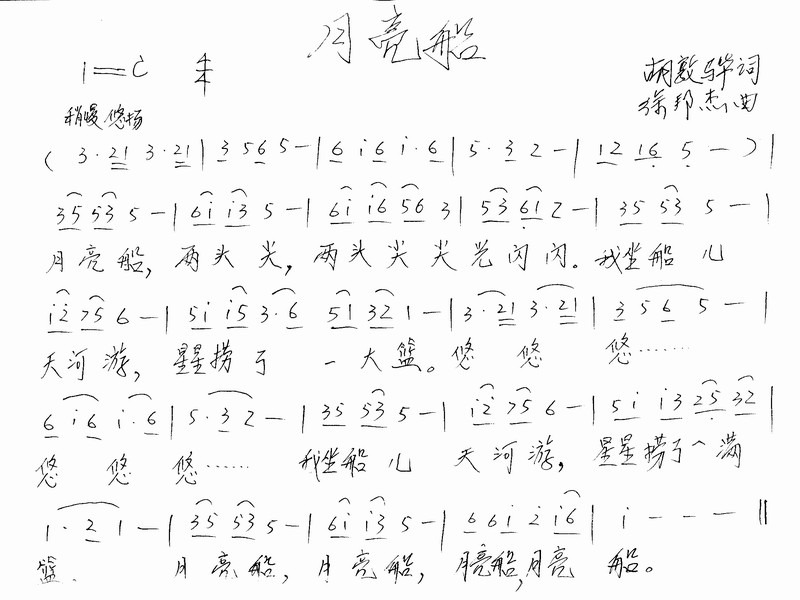 月亮船
1=C 4/4
胡敦骅词
徐邦杰曲
稍慢 悠扬
( 3·21 3·21 | 3 56 5 - | 6 i 6 i·6 | 5·3 2 - | 12 16 5 - ) |
35 53 5 - | 6i i3 5 - | 6i i6 56 3 | 53 61 2 - | 35 53 5 - |
月亮船，两头尖，两头尖尖光闪闪。我坐船儿
i2 75 6 - | 5i i5 3·6 51 32 1 - | 3·21 3·21 | 3 5 6 5 - |
天河游，星星捞了一大篮。悠 悠 悠……
6 i 6 i·6 | 5·3 2 - | 35 53 5 - | i2 75 6 - | 5i i3 25 32 |
悠 悠 悠…… 我坐船儿 天河游，星星捞了^满
1·2 1 - | 35 53 5 - | 6i i3 5 - | 6 6i 2 i6 | i - - - ‖
篮. 月亮船，月亮船，月亮船，月亮 船。